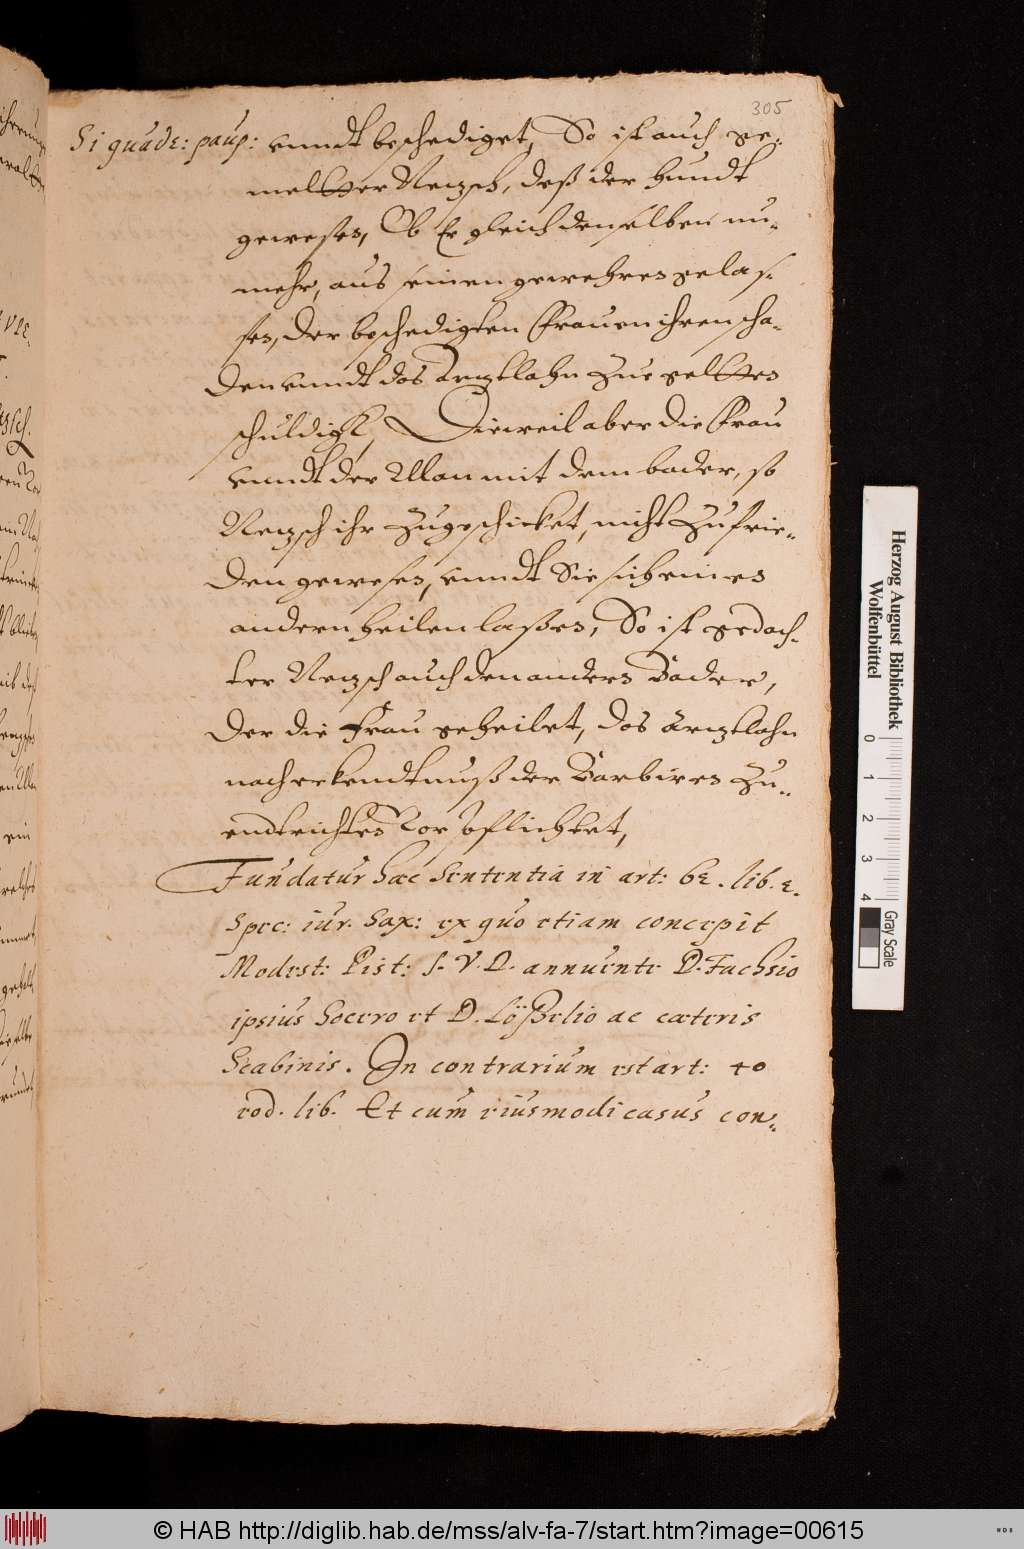 305
Si quade: paup: vnndt beschediget, So ist auch ge-
meltter Nerzsch, deß der Hundt
gewesen, Ob Er gleich denselben nu-
mehr, aus seinen gewehren gelas-
sen, der beschedigten Frauen ihren scha-
den vnndt das Arztlohn zue geltten
schuldigk, Dieweil aber die Frau
vnndt der Man mit dem bader, so
Nerzsch ihr zugeschicket, nicht zufrie-
den gewesen, vnndt Sie sich einen
andern heilen laßen, So ist gedach-
ter Nerzsch auch den andern Bader,
der die Frau geheilet, das Arztlohn
nach erkendtnuß der Barbirer zu-
endtrichten vorpflichtet,
Fundatur haec Sententia in art: 62. lib. 2.
Spec: iur. Sax: ex quo etiam concepit
Modest: Pist: I. V. D. annuente D. Fachsio
ipsius Socero et D. Lößelio ac caeteris
Scabinis. In contrarium est art: 40
eod. lib. Et cum eiusmodi casus con-
Herzog August Bibliothek
Wolfenbüttel
0 1 2 3 4
Gray Scale
© HAB http://diglib.hab.de/mss/alv-fa-7/start.htm?image=00615